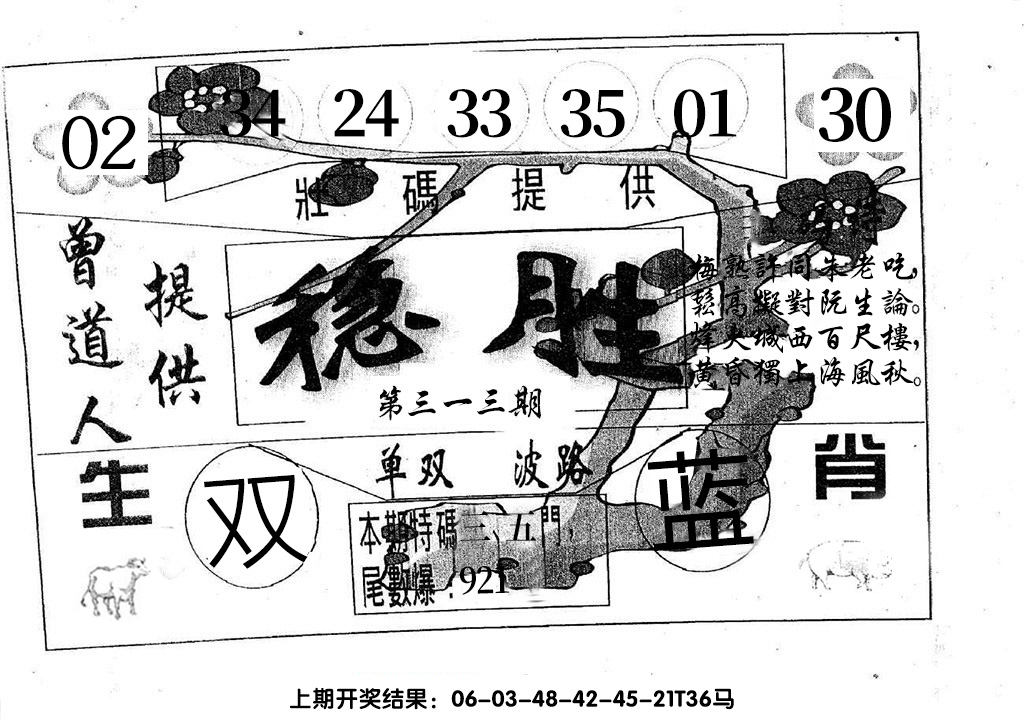 02 34 24 33 35 01 30
壯碼提供
曾道人
提供
稳胜
第三一三期
梅熟許同朱老吃，
鬆高擬對阮生論。
烽火城西百尺樓，
黃昏獨上海風秋。
生
肖
双
蓝
单双 波路
本期特碼三、五門，
尾數爆：921
上期开奖结果：06-03-48-42-45-21T36马